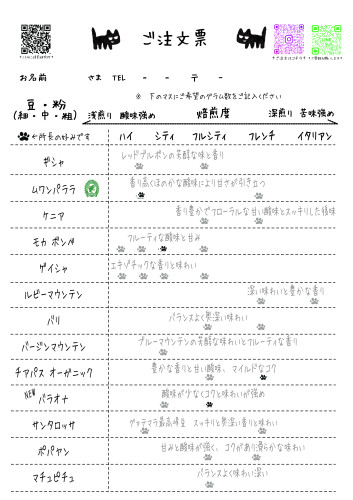 ご注文票
お名前 さま TEL - - 〒 -
※ 下のマスにご希望のグラム数をご記入ください
豆・粉
(細・中・粗) 浅煎り 酸味強め 焙煎度 深煎り 苦味強め
←所長の好みです ハイ シティ フルシティ フレンチ イタリアン
ギシャ レッドブルボンの芳醇な味と香り
ムワンパララ 香り高くほのかな酸味により甘さが引き立つ
ケニア 香り豊かでフローラルな甘い酸味とスッキリした後味
モカ フルーティな酸味と甘み
ゲイシャ エキゾチックな香りと味わい
ルビーマウンテン 深い味わいと豊かな香り
バリ バランスよく奥深い味わい
バージンマウンテン ブルーマウンテンの芳醇な味わいとフルーティな香り
チアパス オーガニック 豊かな香りと甘い酸味、マイルドなコク
NEW パラオナ 酸味が少なくコクと味わいが強め
サンタロッサ グァテマラ最高峰豆 スッキリと奥深い香りと味わい
ポパヤン 甘みと酸味が強く、コクがあり滑らかな味わい
マチュピチュ バランスよく味わい深い